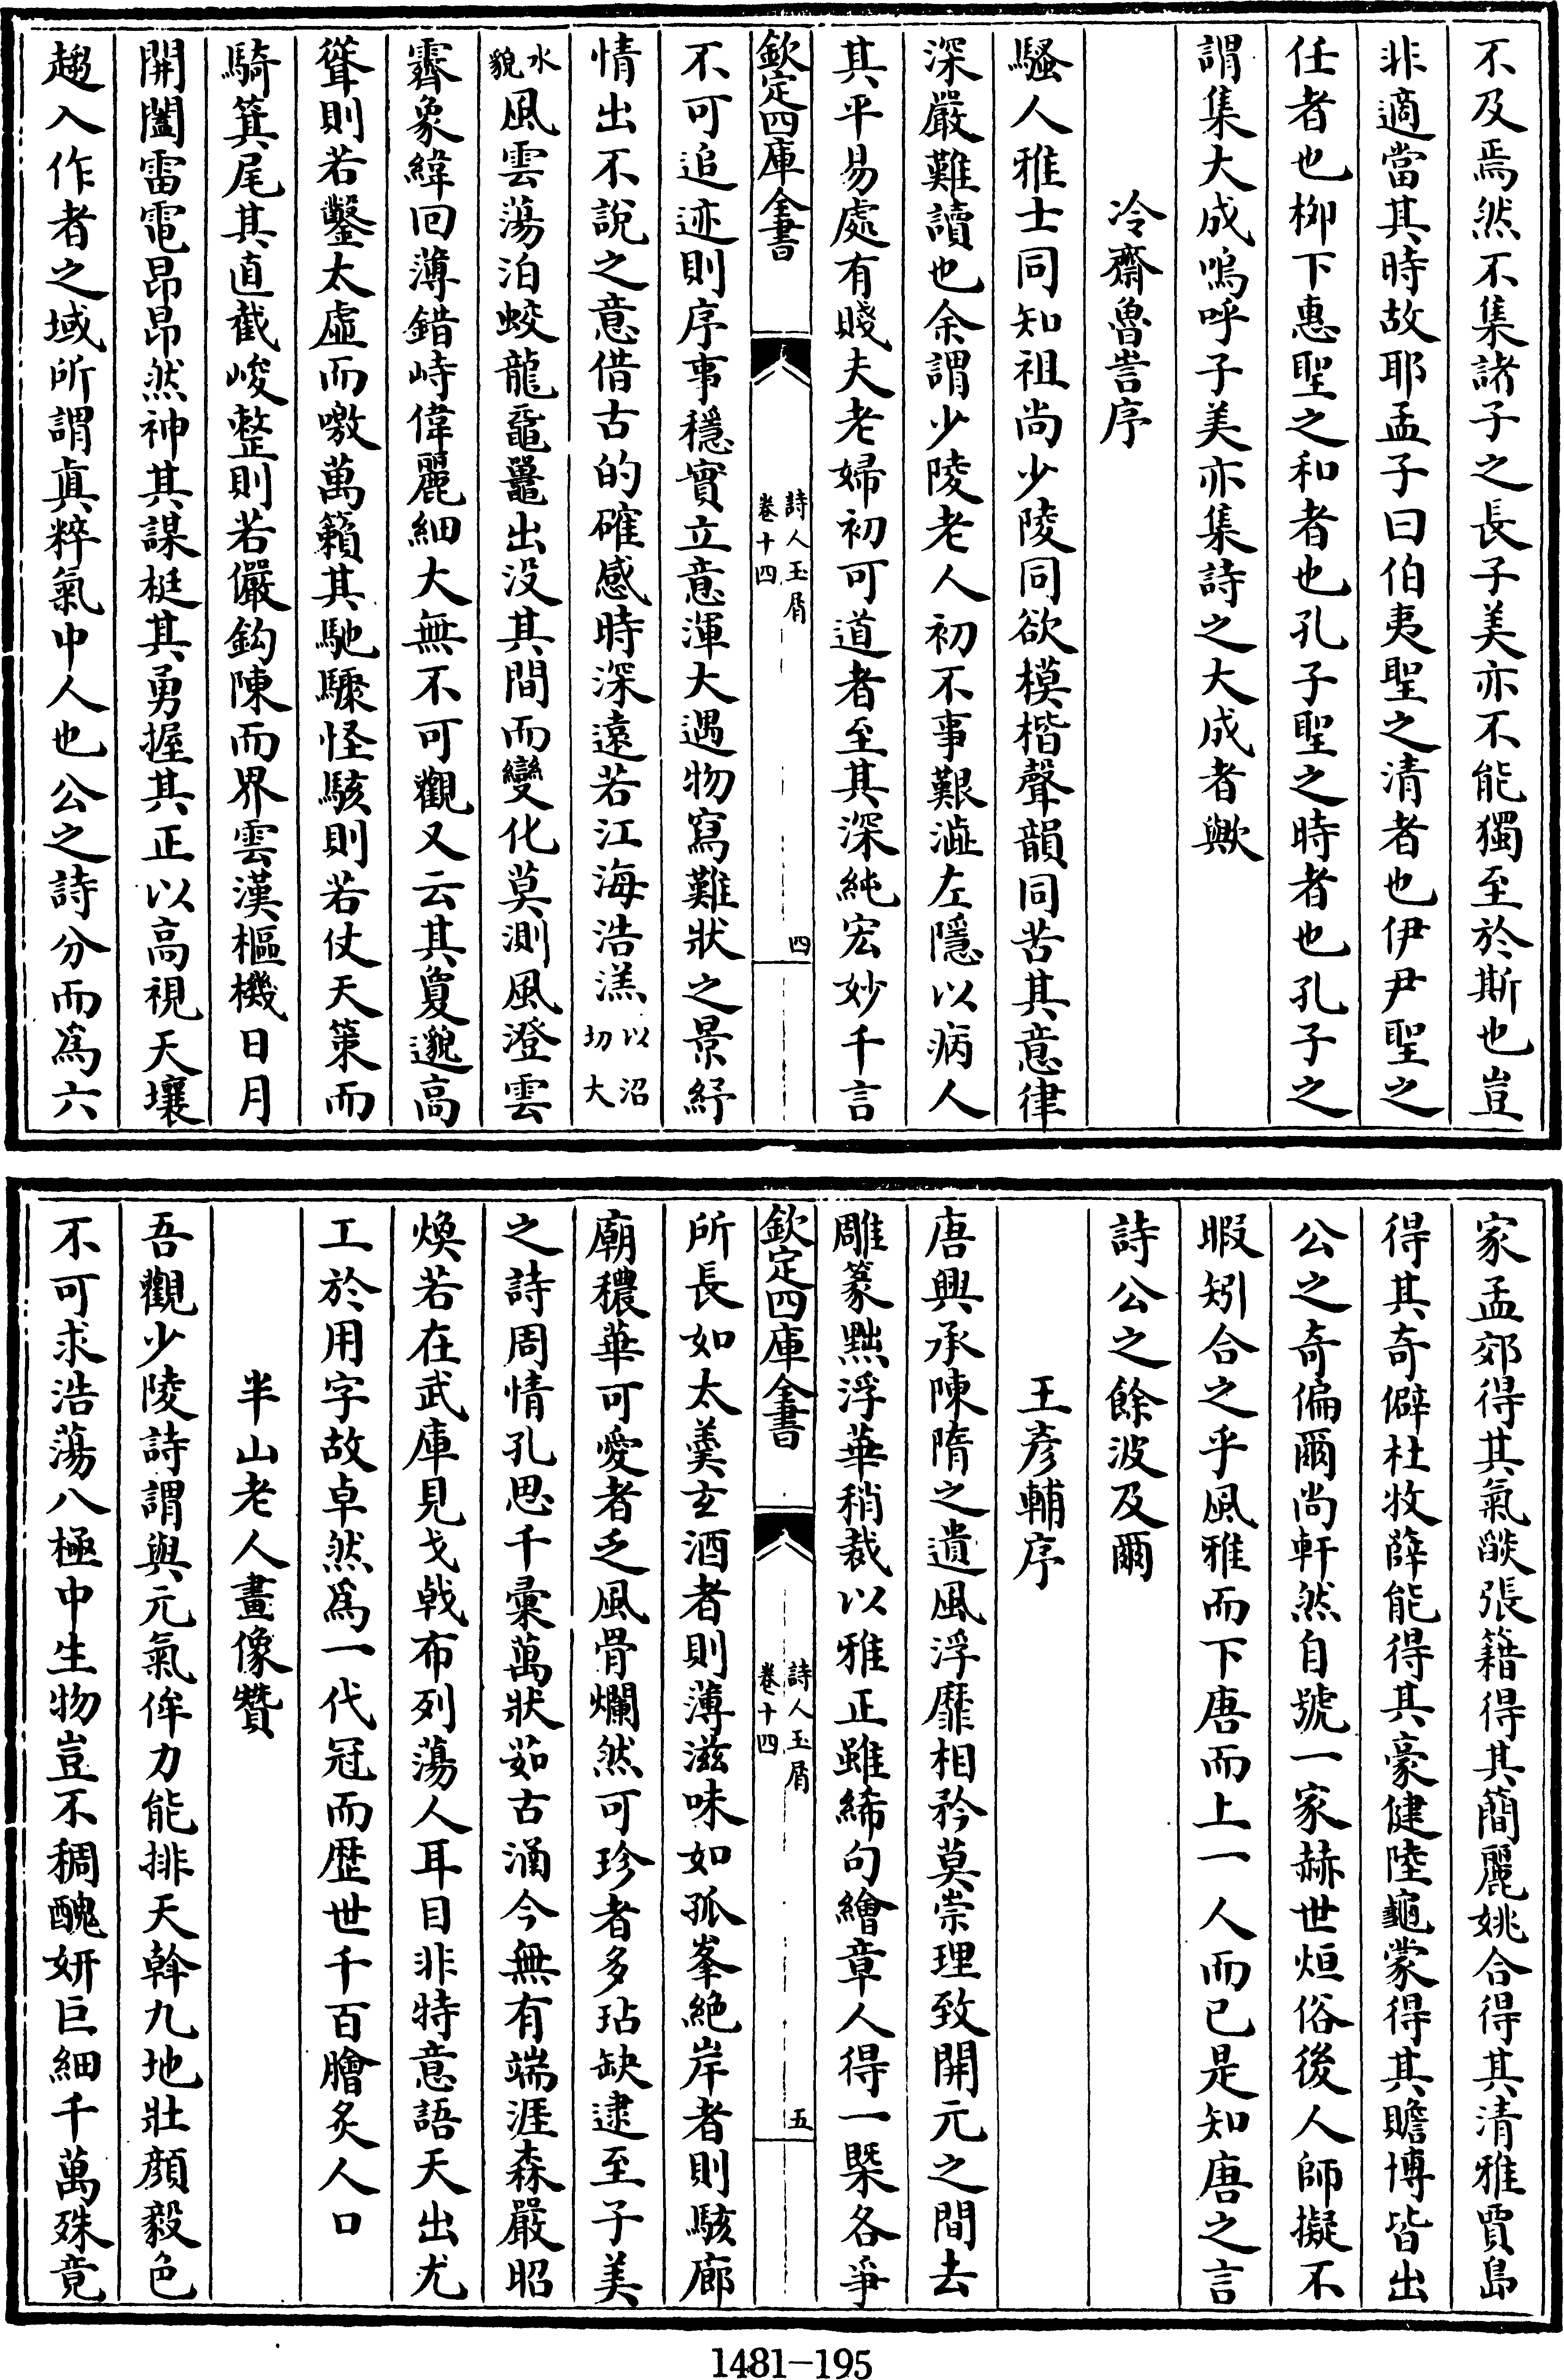 不及焉然不集諸子之長子美亦不能獨至於斯也豈
非適當其時故耶孟子曰伯夷聖之清者也伊尹聖之
任者也栁下惠聖之和者也孔子聖之時者也孔子之
謂集大成嗚呼子美亦集詩之大成者歟
冷齋魯訔序
騷人雅士同知祖尚少陵同欲模楷聲韻同苦其意律
深嚴難讀也余謂少陵老人初不事艱澁左隱以病人
其平易處有賤夫老婦初可道者至其深純宏妙千言
欽定四庫全書
詩人玉屑
卷十四
四
不可追迹則序事穩實立意渾大遇物寫難狀之景紓
情出不說之意借古的確感時深遠若江海浩溔以沼切大
水貌風雲蕩泊蛟龍黿鼉出没其間而變化莫測風澄雲
霽象緯回薄錯峙偉麗細大無不可觀又云其敻邈高
聳則若鑿太虛而噭萬籟其馳驟怪駭則若仗天策而
騎箕尾其直截峻整則若儼鈎陳而界雲漢樞機日月
開闔雷電昂昂然神其謀梃其勇握其正以高視天壤
趨入作者之域所謂真粹氣中人也公之詩分而為六
家孟郊得其氣燄張籍得其簡麗姚合得其清雅賈島
得其奇僻杜牧薛能得其豪健陸龜蒙得其贍博皆出
公之奇偏爾尚軒然自號一家赫世烜俗後人師擬不
暇矧合之乎風雅而下唐而上一人而已是知唐之言
詩公之餘波及爾
王彥輔序
唐興承陳隋之遺風浮靡相矜莫崇理致開元之間去
雕篆黜浮華稍裁以雅正雖絺句繪章人得一槩各爭
欽定四庫全書
詩人玉屑
卷十四
五
所長如太羹玄酒者則薄滋味如孤峯絶岸者則駭廊
廟穠華可愛者乏風骨爛然可珍者多玷缺逮至子美
之詩周情孔思千彙萬狀茹古涵今無有端涯森嚴昭
煥若在武庫見戈戟布列蕩人耳目非特意語天出尤
工於用字故卓然為一代冠而歴世千百膾炙人口
半山老人畫像贊
吾觀少陵詩謂與元氣侔力能排天斡九地壯顔毅色
不可求浩蕩八極中生物豈不稠醜妍巨細千萬殊竟
1481-195